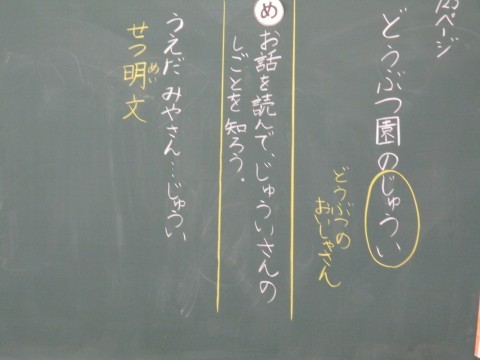 ページ
どうぶつ園のじゅうい
どうぶつの
おいしゃさん
め
お話を読んで、じゅういさんの
しごとを知ろう。
うえだ みやさん…じゅうい
せつ明文
めい